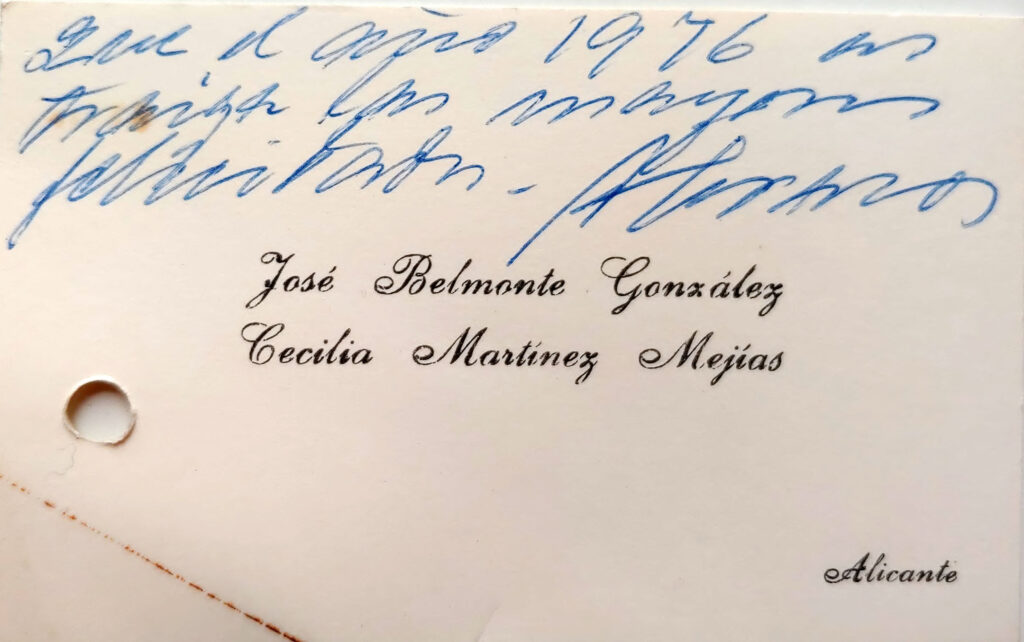 Que el año 1976 os
traiga las mayores
felicidades. - Abrazos
José Belmonte González
Cecilia Martínez Mejías
Alicante